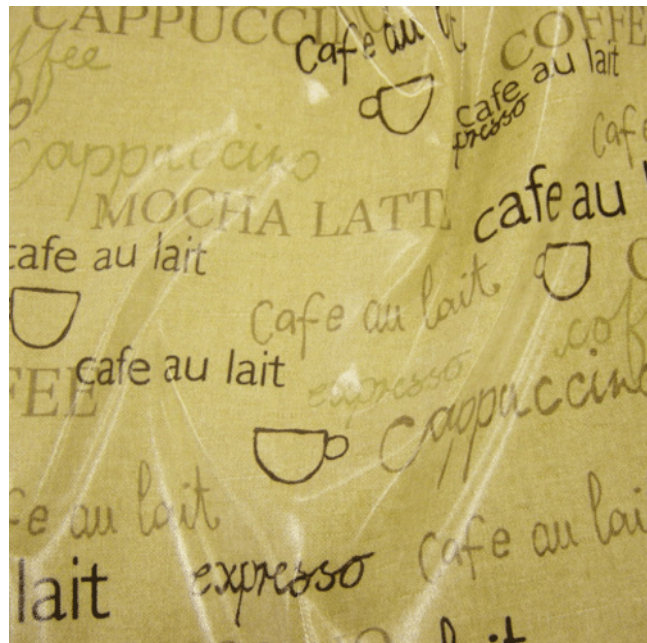 CAPPUCCINO
cafe au
COFFEE
ffee
cafe au lait
presso
cafe
cappuccino
MOCHA LATTE
cafe au
cafe au lait
cafe au lait
coff
cafe au lait
expresso
FEE
cappuccino
fe au lait
cafe au lai
expresso
lait
lait